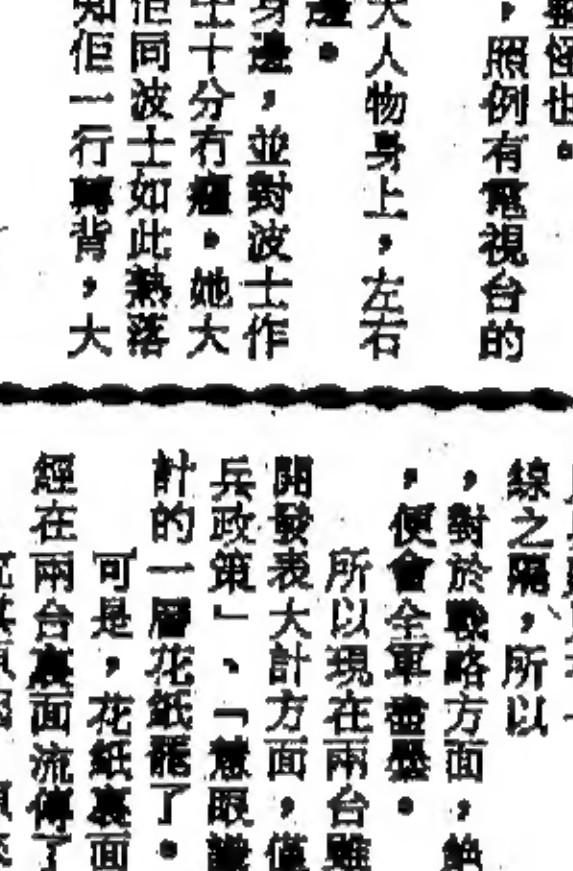 整怪也。
，照例有電視台的
大人物身上，左右
邊。
身邊，並對波士作
士十分冇癮。她大
佢同波士如此熱落
知佢一行轉背，大
線之隔，所以
，對於戰略方面，絶
，便會全軍盡墨。
所以現在兩台雖
開發表大計方面，僅
兵政策」、「慧眼識
計的一層花紙罷了。
可是，花紙裏面
經在兩台裏面流傳了